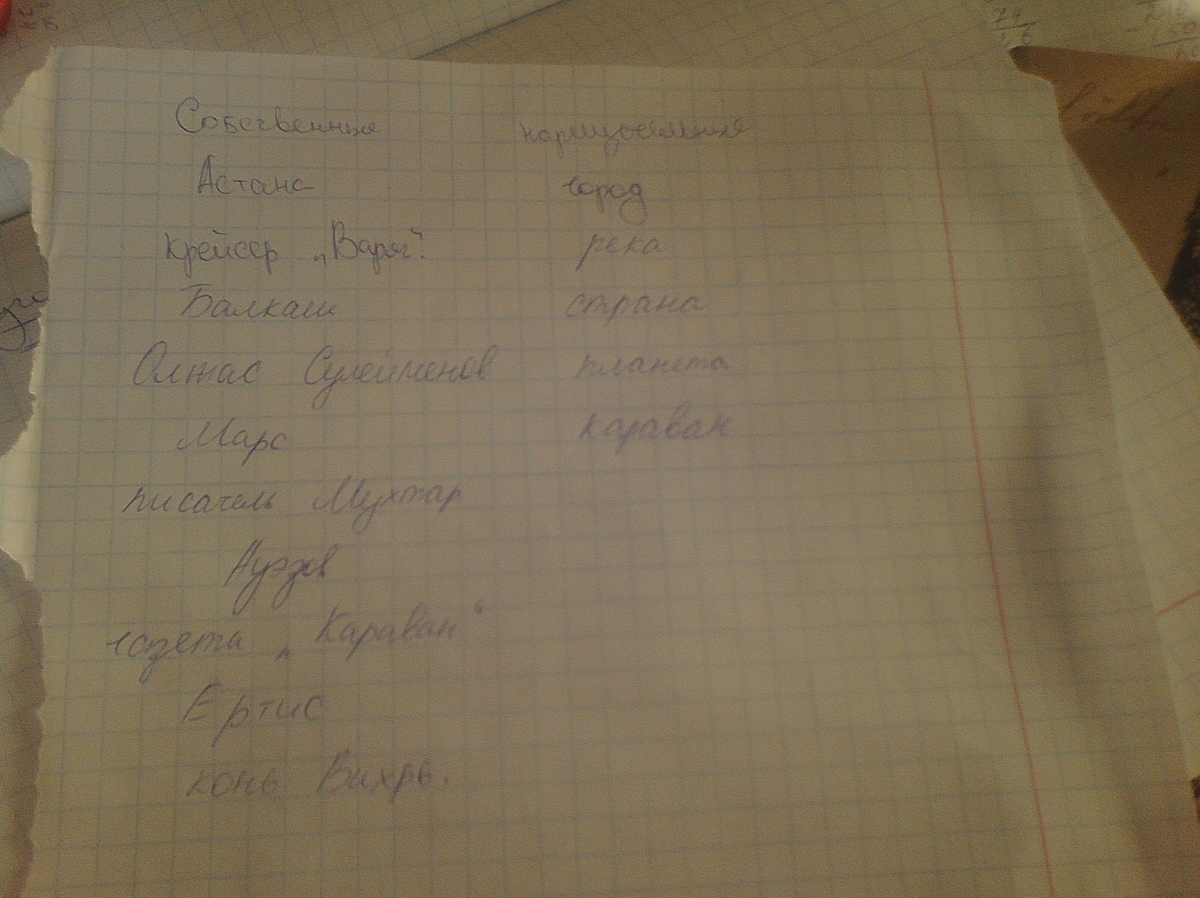 Собственные нарицательные
Астана город
крейсер „Варяг".
Балкаш река
Олжас Сулейменов страна
Марс планета
писатель Мухтар караван
Ауэзов
газета „Караван"
Ертис
конь Вихрь.